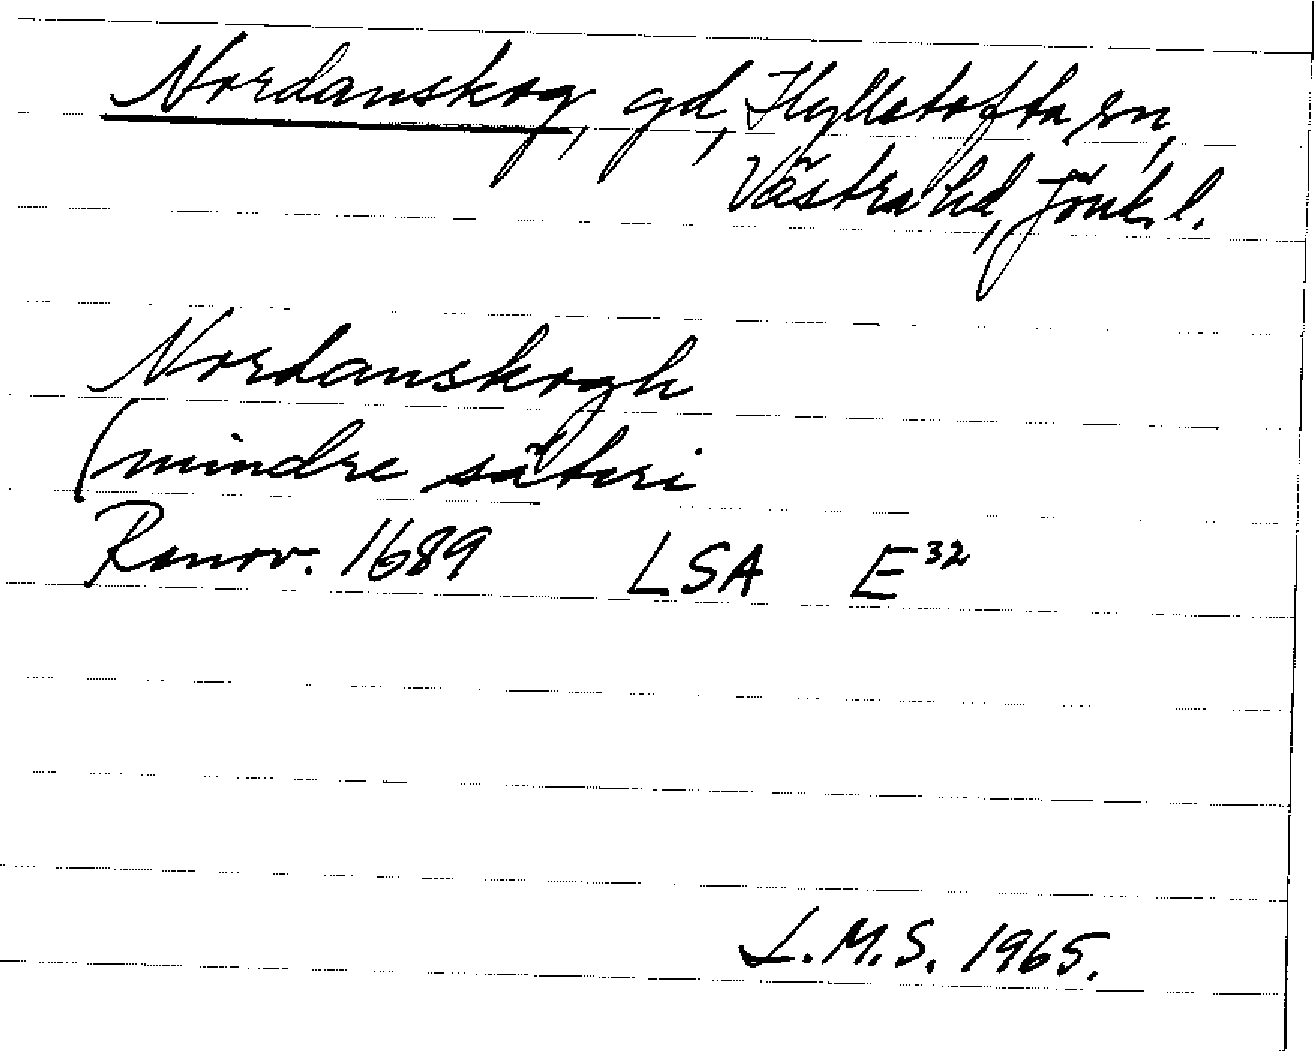 Nordanskog, gd, Hylletofta sn,
Västra hd, Jönk. l.
Nordanskogh
(mindre säteri
Renov. 1689 LSA E³²
L.M.S. 1965.